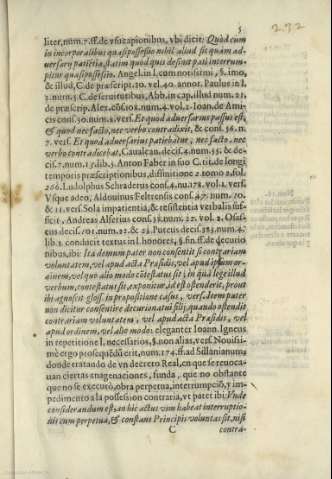 5
232
liter, num. 7. ff. de vsucapionibus, vbi dicit: Quòd cum
in incorporalibus quasi possessio nihil aliud sit quam ad-
uersarij patiētia, statim quòd quis desinit pati interrum-
pitur quasi possessio. Angel. in l. cum notissimi, §. imo,
& illud, C. de præscript. 30. vel 40. annor. Paulus in l.
2. num. 5. C. de seruitutibus, Abb. in cap. illud num. 22.
de præscrip. Alex. cōs. 102. num. 4. vol. 2. Ioan. de Ami-
cis cons. 30. num. 2. vers. Et quod aduersarius passus est,
& quod nec facto, nec verbo contradixit, & cons. 56. n.
7. vers. Et quod aduersarius patiebatur, nec facto, nec
verbo contradicebat, Caualcan. decis. 4. num. 35. & de-
cis. 7. num. 15. lib. 3. Anton Faber in suo C. tit. de longi
temporis præscriptionibus, diffinitione 2. tomo 2. fol.
266. Ludolphus Schraderus cons. 4. nu. 172. vol. 1. vers.
Vsque adeo, Aldouinus Feltrensis cons. 47. num. 70.
& 11. vers. Sola impatientia, & resistentia verbalis suf-
ficit, Andreas Alserius cons. 31. num. 22. vol. 2. Osas-
cus decis. 101. num. 22. & 23. Puteus decis. 253. num. 4.
lib. 2. conducit textus in l. honores, §. fin. ff. de decurio
nibus, ibi: Ita demum pater non consentit si contrariam
voluntatem, vel apud acta Præsidis, vel apud ipsum or-
dinem, vel quo alio modo cōtestatus sit; in qua lege illud
verbum, contestatus sit, exponitur, id est ostenderit, prout
ibi agnoscit gloss. in propositione casus, vers. Item pater
non dicitur consentire decurionatui filij, quando ostendit
contrariam voluntatem, vel apud acta Præsidis, vel
apud ordinem, vel alio modo: eleganter Ioann. Igneus
in repetitione l. necessarios, §. non alias, vers. Nouissi-
mè ergo prosequēdū erit, num. 174. ff. ad Sillanianum
donde tratando de vn decreto Real, en que se reuoca-
uan ciertas enagenaciones, funda, que no obstante
que no se executò, obra perpetua, interrumpciō, y im-
pedimento a la possession contraria, vt patet ibi: Vnde
considerandum est, an hic actus vim habeat interruptio-
nis cum perpetua, & constans Principis voluntas sit, nisi
C
contra-